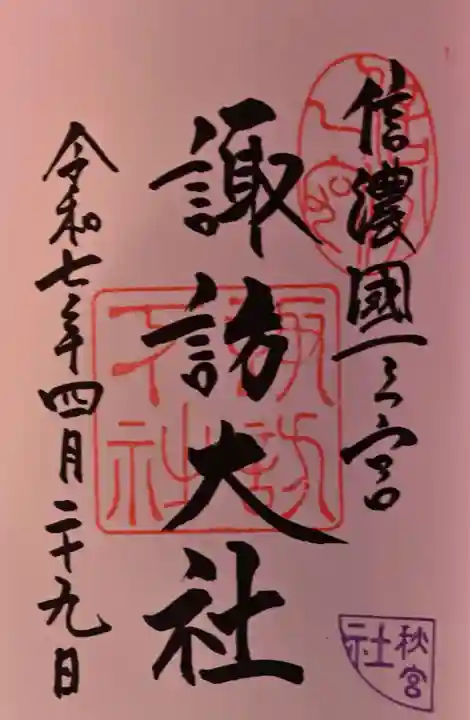 信濃國一之宮
諏訪大社
令和七年四月二十九日
諏訪
下社
秋宮
社